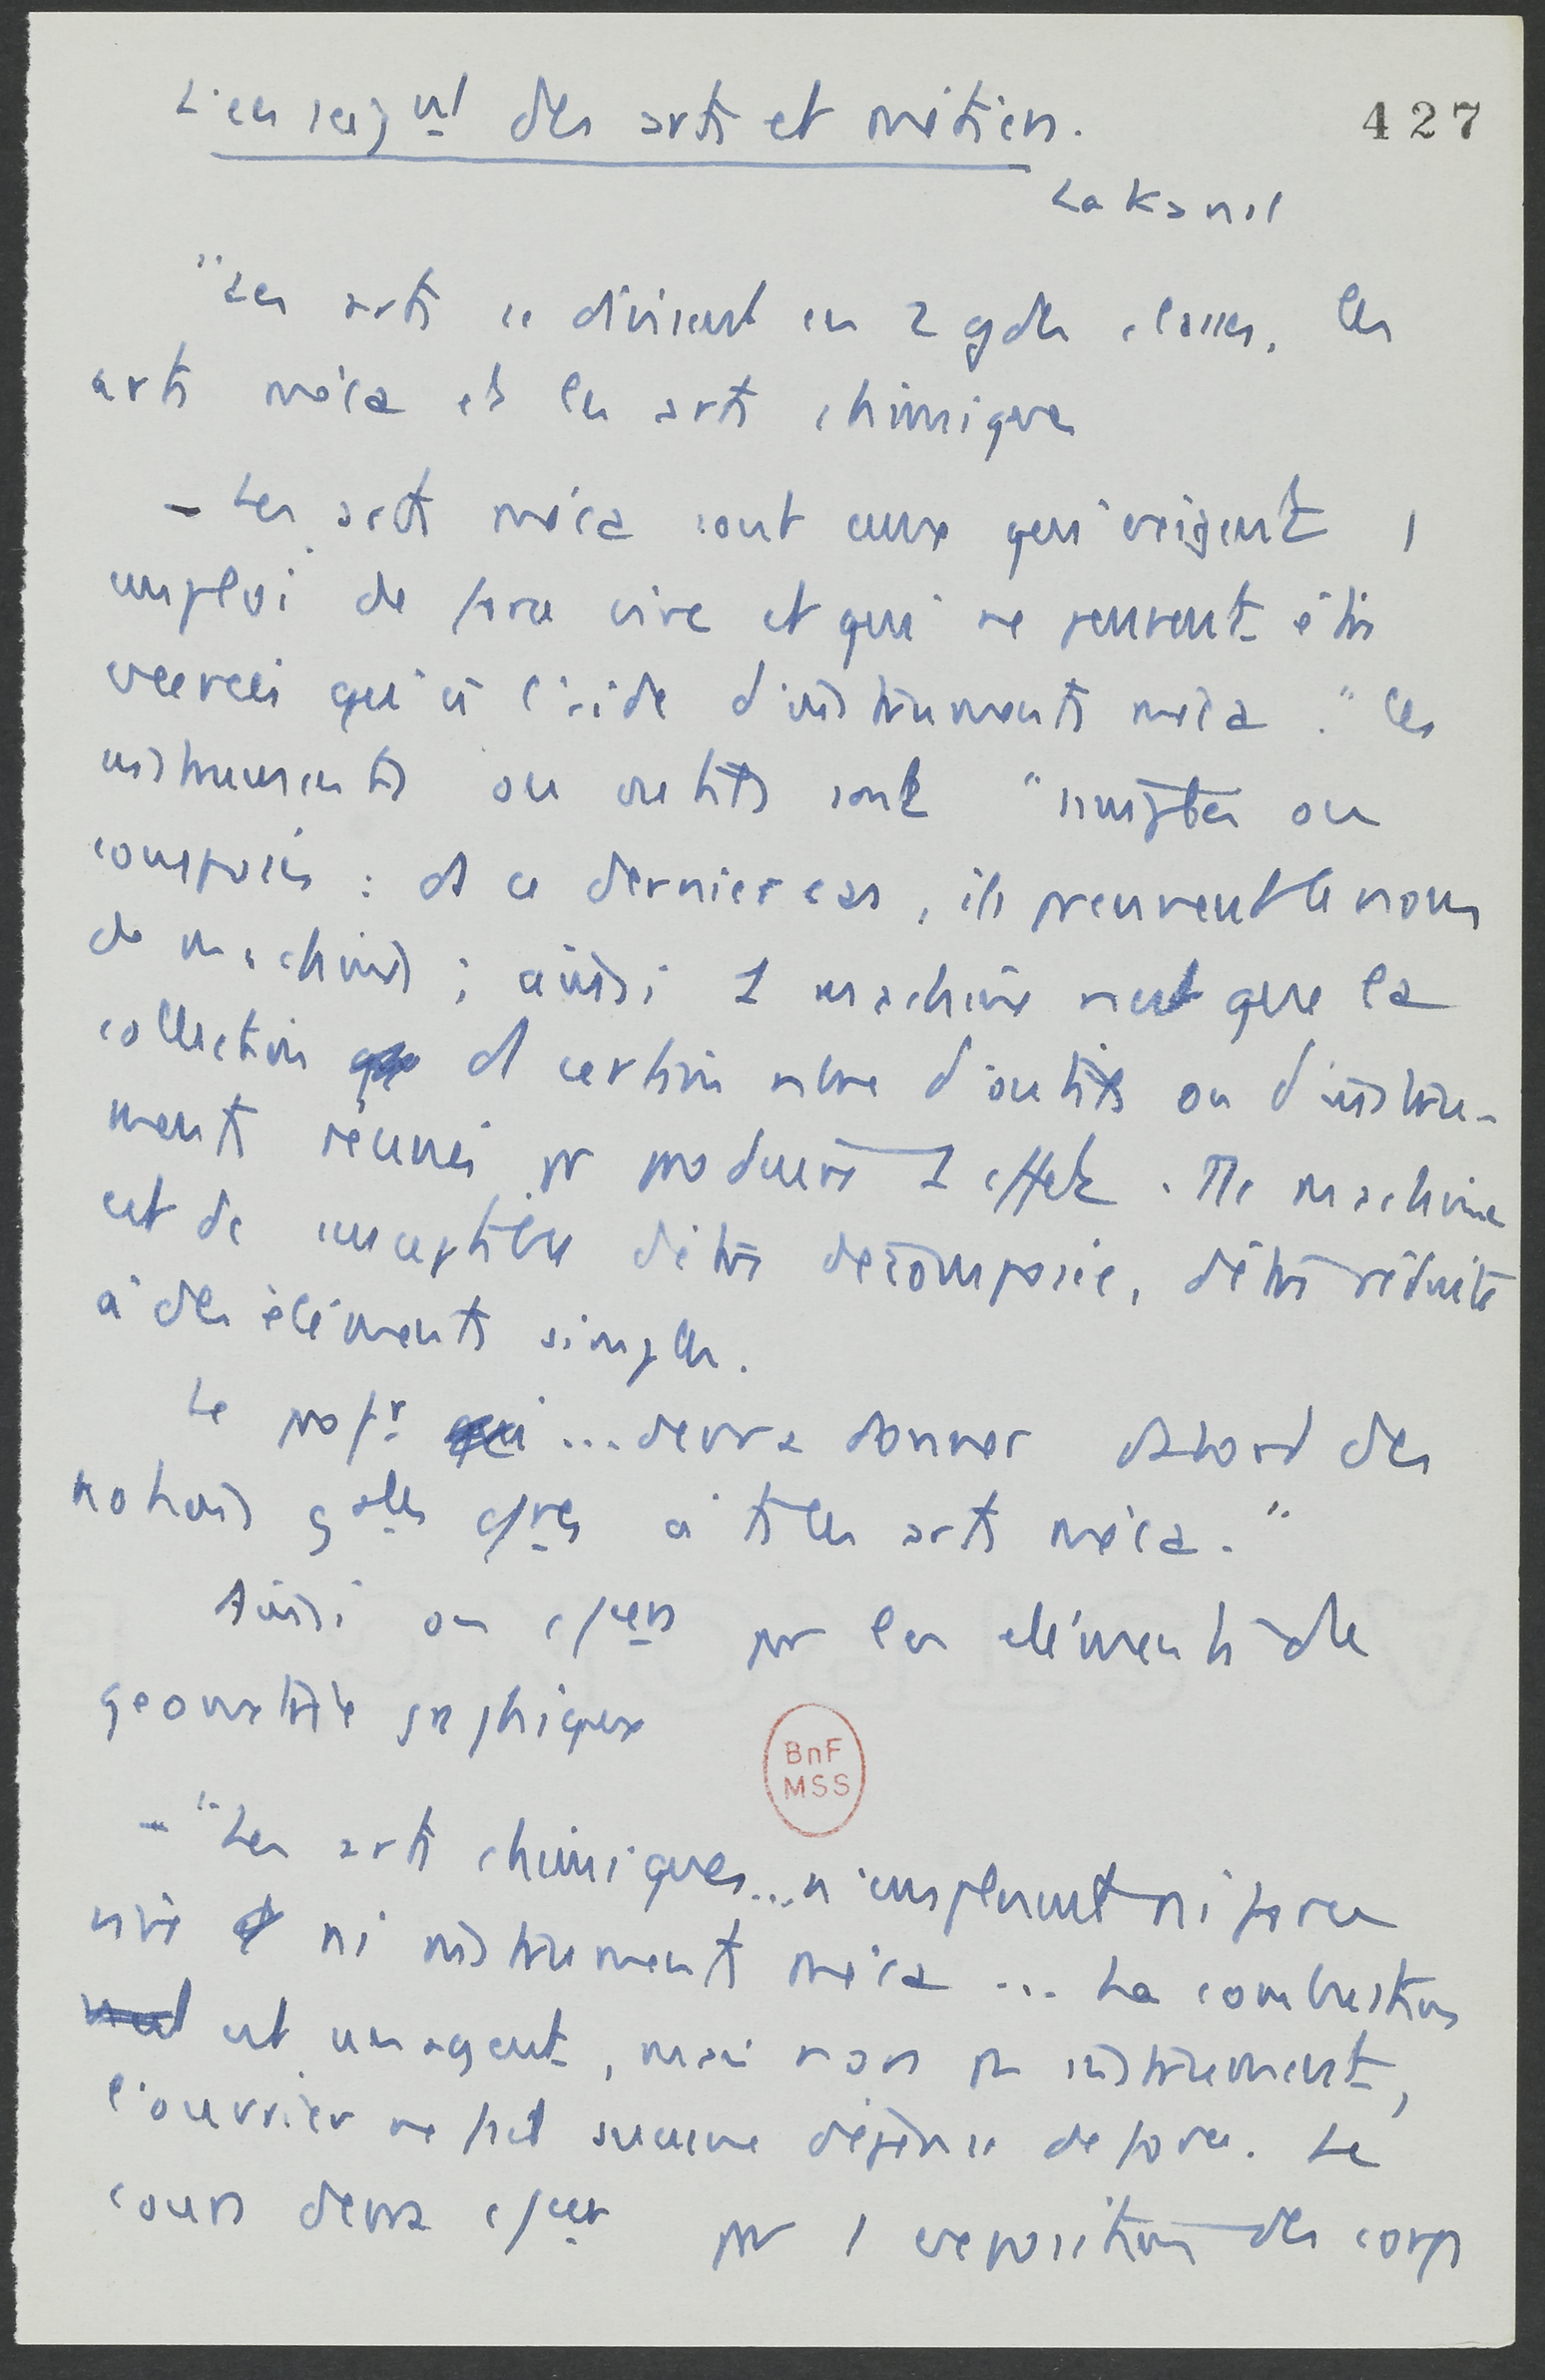 L'enseignt des arts et métiers.
427
Lakanal
"Les arts se divisent en 2 gdes classes, les
arts méca et les arts chimiques
– Les arts méca sont ceux qui exigent l
emploi de force vive et qui ne peuvent être
exercés qu'à l'aide d'instruments méca." Les
instruments ou outils sont "simples ou
composés : ds ce dernier cas, ils prennent le nom
de machines ; ainsi 1 machine n'est que la
collection d'1 certain nbre d'outils ou d'instru-
ments réunis pr produire 1 effet. Tte machine
est dc susceptible d'être décomposée, d'être réduite
à des éléments simples.
Le profr ... devra donner d'abord des
notions gales cnes à ts les arts méca."
Ainsi on cencera par les éléments de
géométrie graphique
BnF
MSS
– "Les arts chimiques... n'emploient ni force
vive ni instruments méca ... La combustion
est un agent, mais non pas instrument,
l'ouvrier ne fait aucune dépense de force. Le
cours devra cencer par l exposition des corps